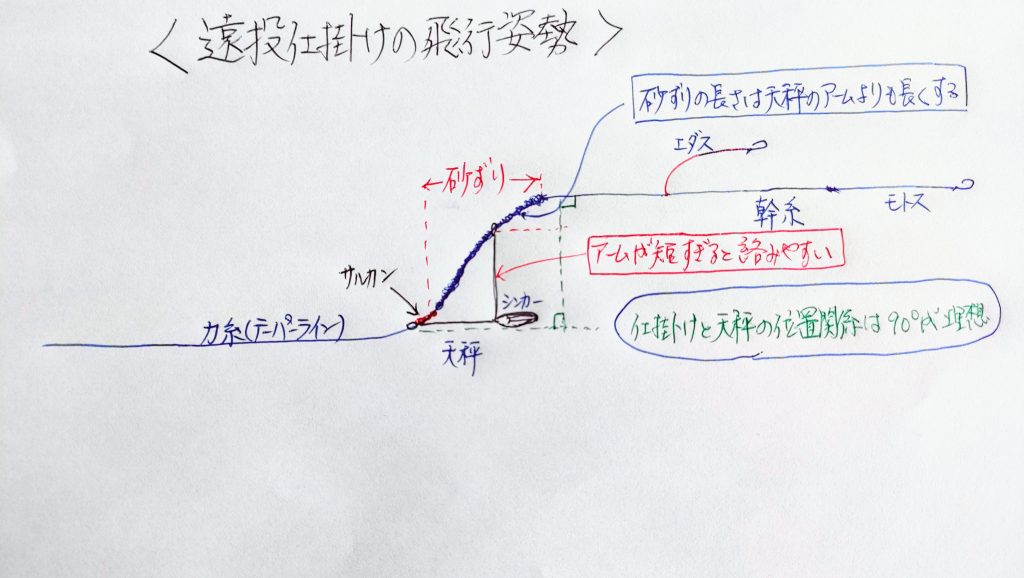 ＜遠投仕掛けの飛行姿勢＞
砂ずりの長さは天秤のアームよりも長くする
エダス
←砂ずり→
幹糸
モトス
アームが短すぎると絡みやすい
サルカン
シンカー
力糸(テーパーライン)
仕掛けと天秤の位置関係は90°が理想
天秤